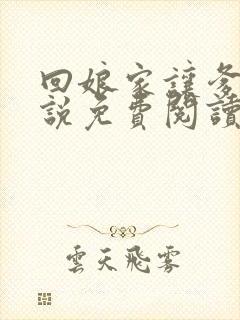 回娘家讓爹
說免費閱讀
雲天飛霧